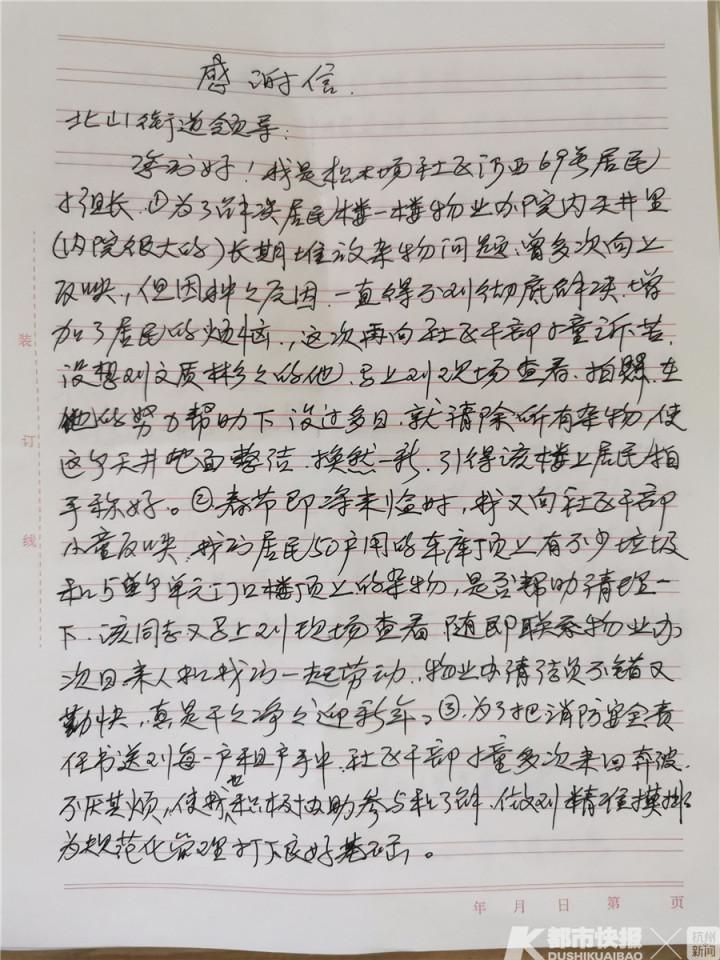 感谢信.
北山街道领导:
您们好!我是松木场社区河西69号居民
小组长.①为了解决居民楼一楼物业办院内天井里
(内院很大的)长期堆放杂物问题、曾多次向上
反映,但因种之原因.一直得不到彻底解决.增
加了居民的烦恼.,这次再向社区干部小童诉苦,
没想到文质彬之的他,马上到现场查看.拍照.在
他的努力帮助下没过多日,就清除所有杂物,使
这个天井地面整洁.换然一新.引得该楼上居民拍
手称好。②春节即将来临时,我又向社区干部
小童反映.我们居民50户用的车库顶上有不少垃圾
和5单单元门口楼顶上的杂物,是否帮助清理一
下.该同志又马上到现场查看.随即联系物业办
次日来人和我们一起劳动.,物业办清洁员不错又
勤快,真是干之净之迎新年。③.为了把消防安全责
任书送到每一户租户手中.社区干部小童多次来回奔波.
不厌其烦,使我也积极协助参与和了解.做到精准摸排
为规范化管理打下良好基础。
装
订
线
年 月 日 第 页
都市快报
DUSHIKUAIBAO
杭州
新闻